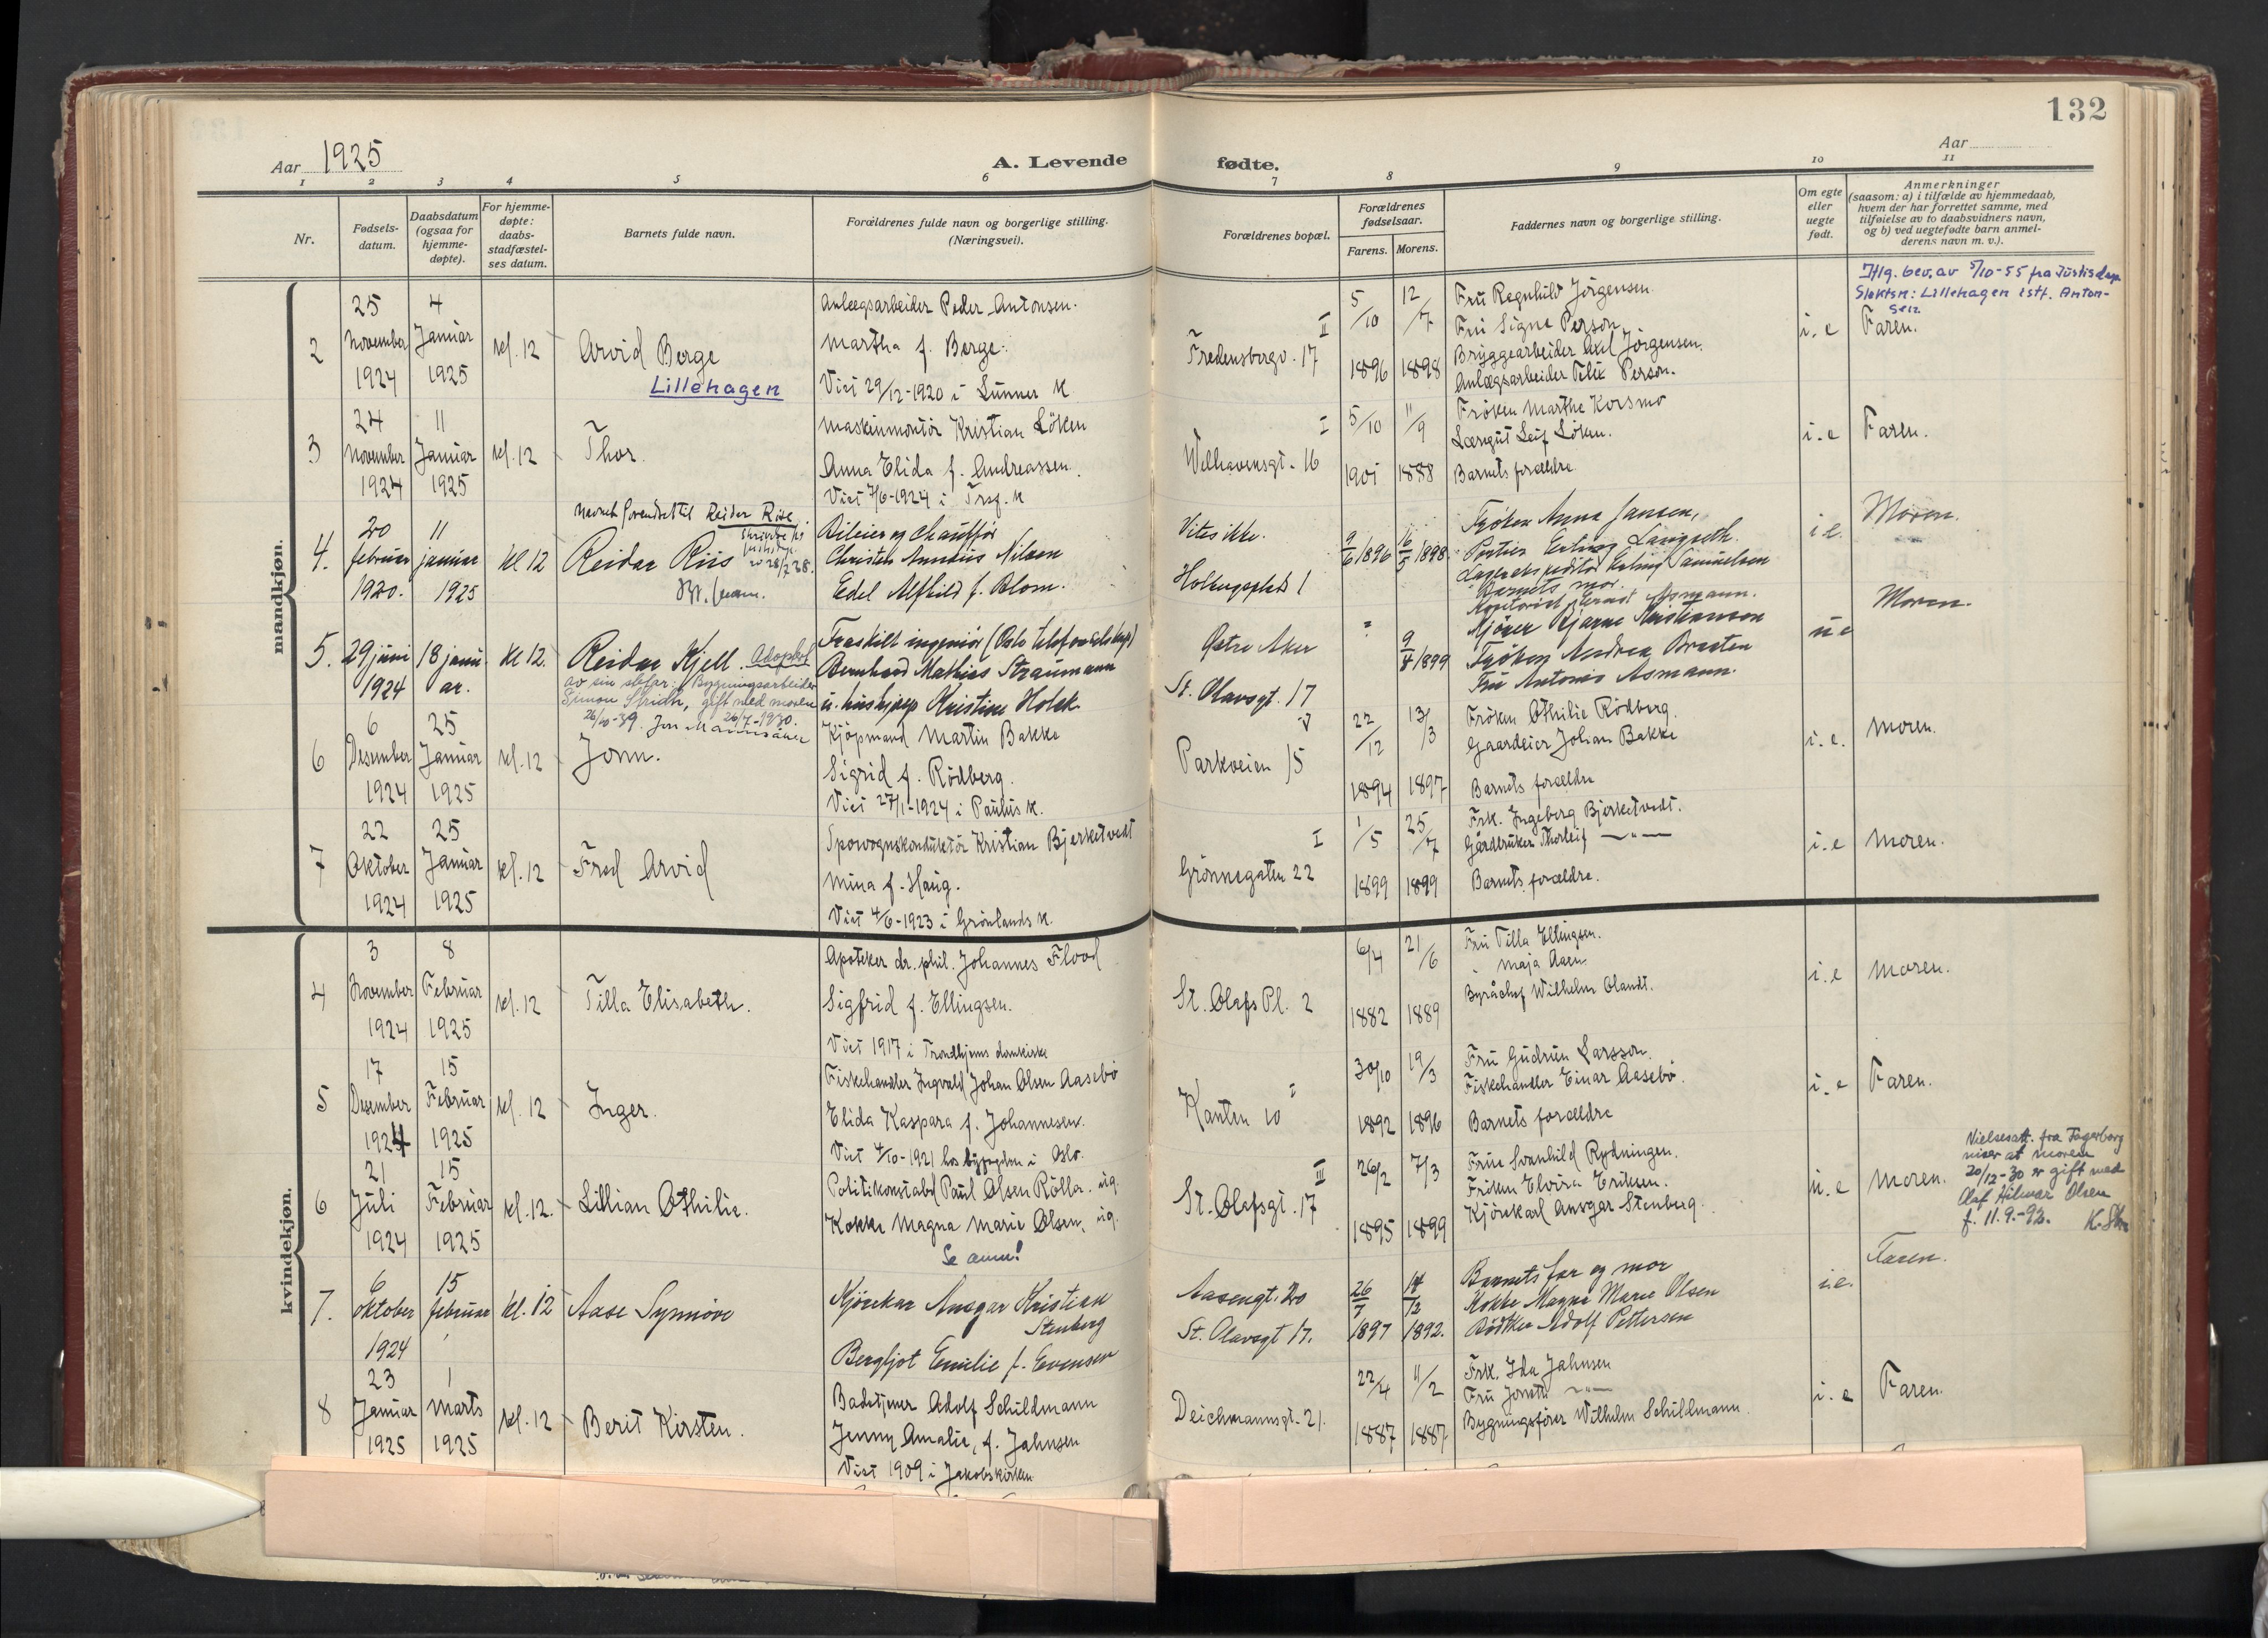 132
Aar 1925
A. Levende fødte.
Aar
1 2 3 4 5 6 7 8 9 10 11
Nr.
Fødsels-
datum.
Daabsdatum
(ogsaa for
hjemme-
døpte).
For hjemme-
døpte:
daabs-
stadfæstel-
ses datum.
Barnets fulde navn.
Forældrenes fulde navn og borgerlige stilling.
(Næringsvei).
Forældrenes bopæl.
Forældrenes
fødselsaar.
Farens. Morens.
Faddernes navn og borgerlige stilling.
Om egte
eller
uegte
født.
Anmerkninger
(saasom: a) i tilfælde av hjemmedaab,
hvem der har forrettet samme, med
tilføielse av to daabsvidners navn,
og b) ved uegtefødte barn anmel-
derens navn m. v.).
mandkjøn.
2
25 November 1924
4 Januar 1925
kl. 12
Arvid Berge
Lillehagen
Anlægsarbeider Peder Antonsen.
Martha f. Berge.
Viet 29/12-1920 i Lunner k
II
Fredensborgv. 17
5/10 1896
12/7 1898
Fru Regnhild Jörgensen.
Fru Signe Person
Bryggearbeider Axel Jörgensen.
Anlægsarbeider Felix Person.
i. e
Ifllg. bev. av 5/10-55 fra Justisdep.
Slektsn: Lillehagen istf. Anton-
sen
Faren.
3
24 November 1924
11 Januar 1925
kl. 12
Thor.
Maskinmontör Kristian Löken
Anna Elida f. Andreassen.
Viet 7/6-1924 i Trefg. k
I
Welhavensgt. 16
5/10 1901
11/9 1888
Fröken Marthe Korsmo
Læregut Leif Löken.
Barnets forældre.
i. e
Faren.
4.
20 februar 1920.
11 januar 1925
kl 12
Navnet forandret til Reidar Riise
Reidar Riis
28/7 28.
Bileier og chaufför
Christen Annæus Nilsen
Edel Alfhild f. Blom.
Vites ikke.
Holbergsplads 1
9/6 1896
16/5 1898
Fröken Anna Jansen,
Portier Erling Langseth.
Lagerekspeditör Erling Samuelsen
Barnets mor.
i. e.
Moren.
5.
29 juni 1924
18 januar.
kl 12.
Reidar Kjell. Adoptert
av sin stefar: Bygningsarbeider
Simon Stridh, gift med moren
26/7-1930.
26/10-39. Jon Mannsåker
Fraskilt ingeniör (Oslo Telefonselskap)
Bernhard Mathias Straumann
u. hushjelp Kristine Holck
Östre Aker
St. Olavsgt. 17
?
9/4 1899
Kontorist Ernst Asmann.
Mjöner Bjarne Kristiansen
Fröken Andrea Braaten
Fru Antonie Asmann.
u e
Moren.
6
6 Desember 1924
25 Januar 1925
kl. 12
Jonn.
Kjöpmand Martin Bakke
Sigrid f. Rödberg.
Viet 27/1-1924 i Paulus k.
V
Parkveien 15
22/12 1894
13/3 1897
Fröken Othilie Rödberg.
Gaardeier Johan Bakke
Barnets forældre
i. e.
Moren.
7
22 Oktober 1924
25 Januar 1925
kl. 12
Fred Arvid
Sporvognskonduktör Kristian Bjerketvedt
Mina f. Haug.
Viet 4/6-1923 i Grönlands k.
I
Grönnegaten 22
1/5 1899
25/7 1899
Frk. Ingeberg Bjerketvedt.
Gårdbruker Thorleif —"—
Barnets forældre.
i. e
Moren.
kvindekjøn.
4
3 November 1924
8 Februar 1925
kl. 12
Tilla Elisabeth.
Apoteker dr. phil. Johannes Flood
Sigfrid f. Ellingsen.
Viet 1917 i Trondhjems domkirke
St. Olafs Pl. 2
6/4 1882
21/6 1889
Fru Tilla Ellingsen.
" Maja Aasen
Byråchef Wilhelm Olandt.
i. e
Moren.
5
17 Desember 1924
15 Februar 1925
kl. 12
Inger.
Fiskehandler Ingvald Johan Olsen Aasebö
Elida Kaspara f. Johannesen.
Viet 4/10-1921 hos byfogden i Oslo.
I
Kanten 10
30/10 1892
19/3 1896
Fru Gudrun Larsson
Fiskehandler Einar Aasebö.
Barnets forældre
i. e
Faren.
6
21 Juli 1924
15 Februar 1925
kl. 12.
Lillian Othilie.
Politikonstabel Paul Olsen Rölla. ug.
Kokke Magna Marie Olsen. ug.
Se anm!
III
St. Olafsgt. 17
26/2 1895
7/3 1899
Frue Svanhild Rydningen.
Fröken Elvira Eriksen.
Kjörekarl Ansgar Stenberg.
u. e
Moren.
Vielsesatt. fra Fagerborg
viser at moren
20/12-30 er gift med
Olaf Hilmar Olsen
f. 11.9.-93.
7.
6 oktober 1924
15 februar
kl. 12
Aase Synnöve
Kjörekar Ansgar Kristian
Stenberg
Bergljot Emilie f. Evensen
Aasengt. 20
St. Olavsgt 17.
26/7 1897
14/12 1892.
Barnets far og mor
Kokke Magna Marie Olsen
Bödtker Adolf Pettersen
i. e.
Faren.
8
23 Januar 1925
1 Marts 1925
kl. 12
Berit Kirsten.
Badetjener Adolf Schildmann
Jenny Amalie, f. Jahnsen
Viet 1909 i Jakobskirken
Deichmannsgt. 21.
22/4 1887
11/2 1887
Frk. Ida Jahnsen
Fru Jonetta —"—
Bygningsförer Wilhelm Schildmann.
i. e
Faren.